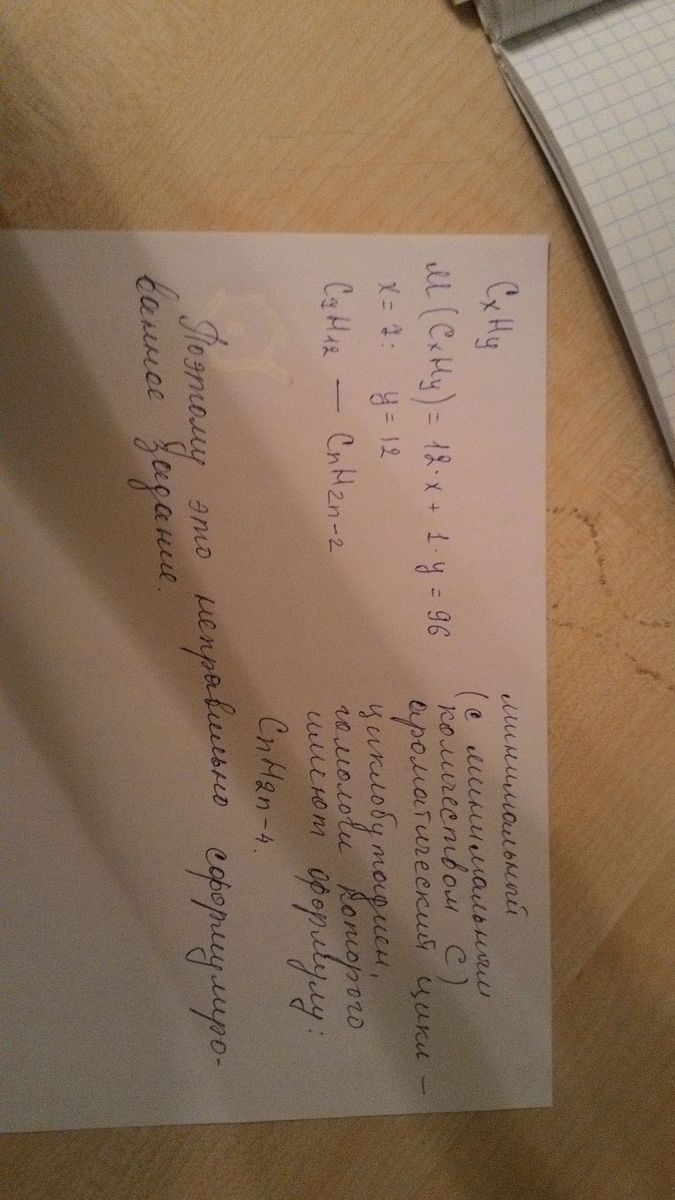 CxHy
M (CxHy) = 12·x + 1·y = 96
x = 7: y = 12
C7H12 — CnH2n-2
минимальный
(с минимальным
количеством C)
ароматический цикл —
циклобутадиен,
гомологи которого
имеют формулу:
CnH2n-4.
Поэтому это неправильно сформулиро-
ванное задание.